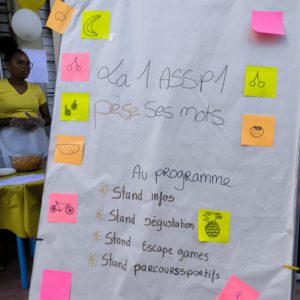 La 1 ASSP1
pèse ses mots
Au programme
* Stand infos
* Stand dégustation
* Stand Escape games
* Stand parcourssportifs